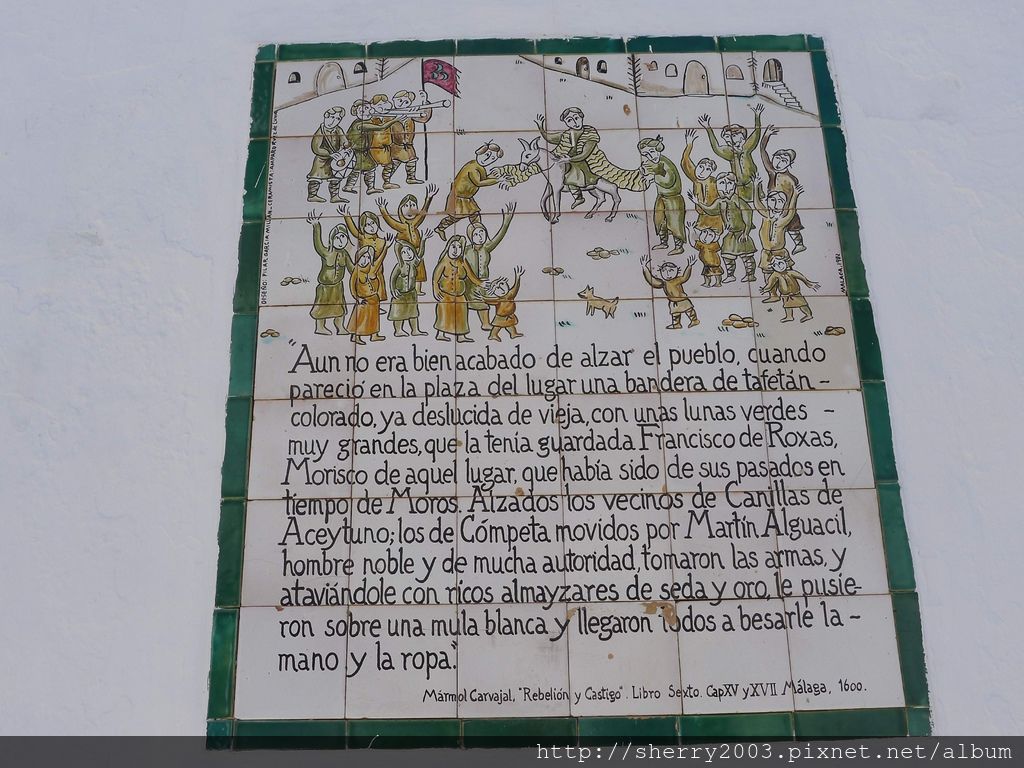 DISEÑO: PILAR GARCIA MILLÁN.-CERAMISTA: AMPARO RUIZ DE LUNA.
MALAGA, 1982
"Aun no era bien acabado de alzar el pueblo, cuando
pareció en la plaza del lugar una bandera de tafetán -
colorado, ya deslucida de vieja, con unas lunas verdes -
muy grandes, que la tenía guardada Francisco de Roxas,
Morisco de aquel lugar, que había sido de sus pasados en
tiempo de Moros. Alzados los vecinos de Canillas de
Aceytuno; los de Cómpeta movidos por Martín Alguacil,
hombre noble y de mucha autoridad, tomaron las armas, y
ataviándole con ricos almayzares de seda y oro, le pusie-
ron sobre una mula blanca y llegaron todos a besarle la -
mano y la ropa".
Mármol Carvajal, "Rebelión y Castigo". Libro Sexto. Cap XV y XVII Málaga, 1600.
http://sherry2003.pixnet.net/album